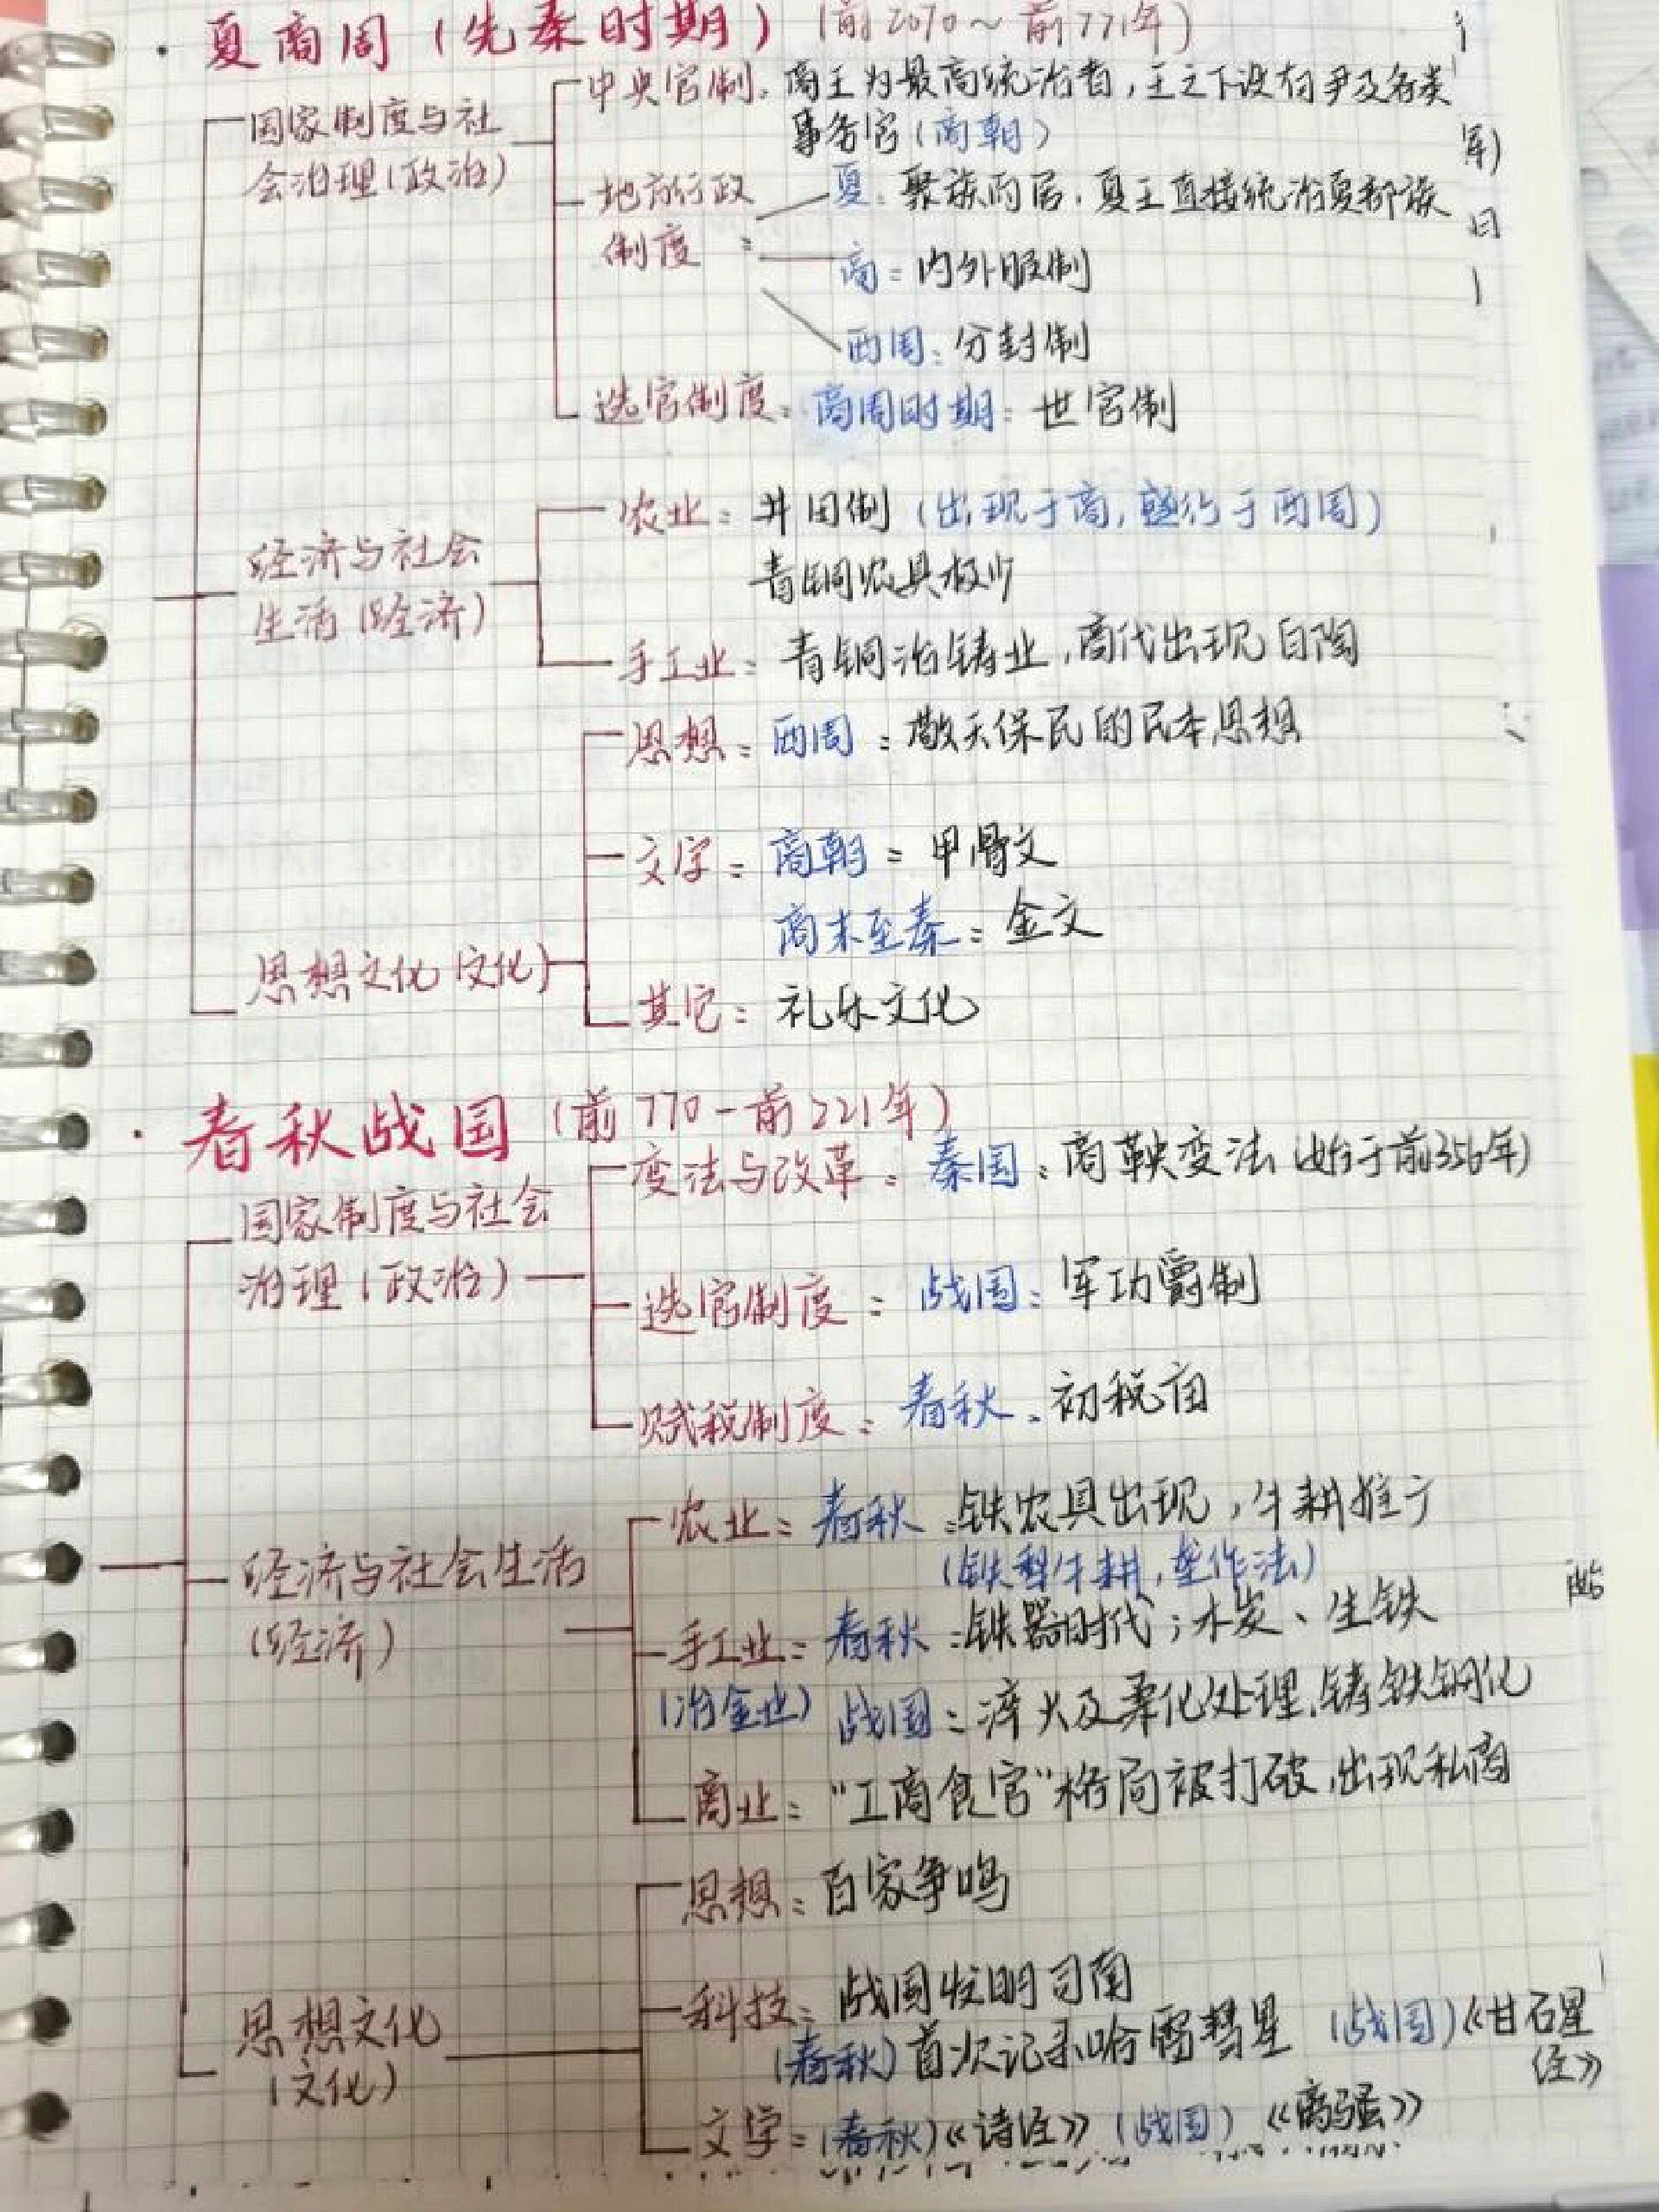 ·夏商周(先秦时期)(前2070~前771年)
国家制度与社
会治理(政治)
中央官制:商王为最高统治者,王之下设有尹及各类
事务官(商朝)
地方行政
制度:
夏:聚族而居,夏王直接统治夏部族
商:内外服制
西周:分封制
选官制度:商周时期:世官制
经济与社会
生活(经济)
农业:井田制(出现于商,盛行于西周)
青铜农具极少
手工业:青铜冶铸业,商代出现白陶
思想文化(文化)
思想:西周:敬天保民的民本思想
文字:商朝:甲骨文
商末至秦:金文
其它:礼乐文化
·春秋战国(前770-前221年)
国家制度与社会
治理(政治)
变法与改革:秦国:商鞅变法(始于前356年)
选官制度:战国:军功爵制
赋税制度:春秋:初税亩
经济与社会生活
(经济)
农业:春秋:铁农具出现,牛耕推广
(铁犁牛耕,垄作法)
手工业:春秋:铁器时代;木炭、生铁
(冶金业)战国:淬火及柔化处理,铸铁钢化
商业:“工商食官”格局被打破,出现私商
思想文化
(文化)
思想:百家争鸣
科技:战国发明司南
(春秋)首次记录哈雷彗星 (战国)《甘石星
经》
文字:(春秋)《诗经》(战国)《离骚》
年)
日